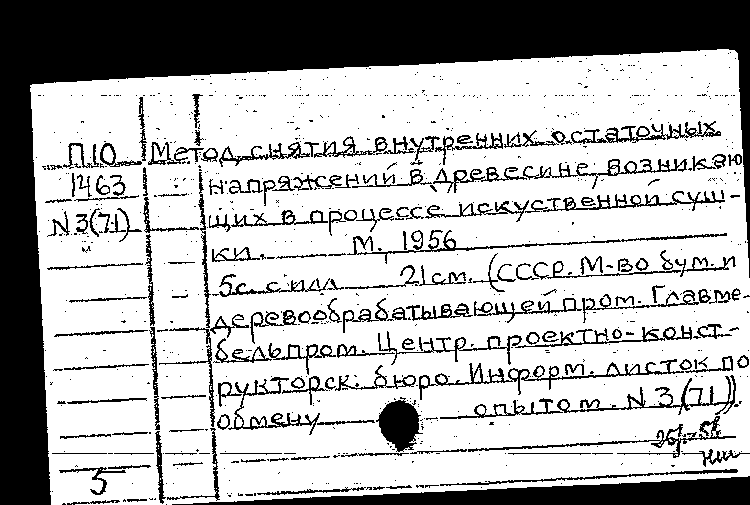 П10 Метод снятия внутренних остаточных
1463 напряжений в древесине, возникаю
N3(71) щих в процессе искуственной суш-
ки. М., 1956
5с. с илл 21см. (СССР. М-во бум. и
деревообрабатывающей пром. Главме-
бельпром. Центр. проектно-конст-
рукторск. бюро. Информ. листок по
обмену опытом. N 3(71)).
5